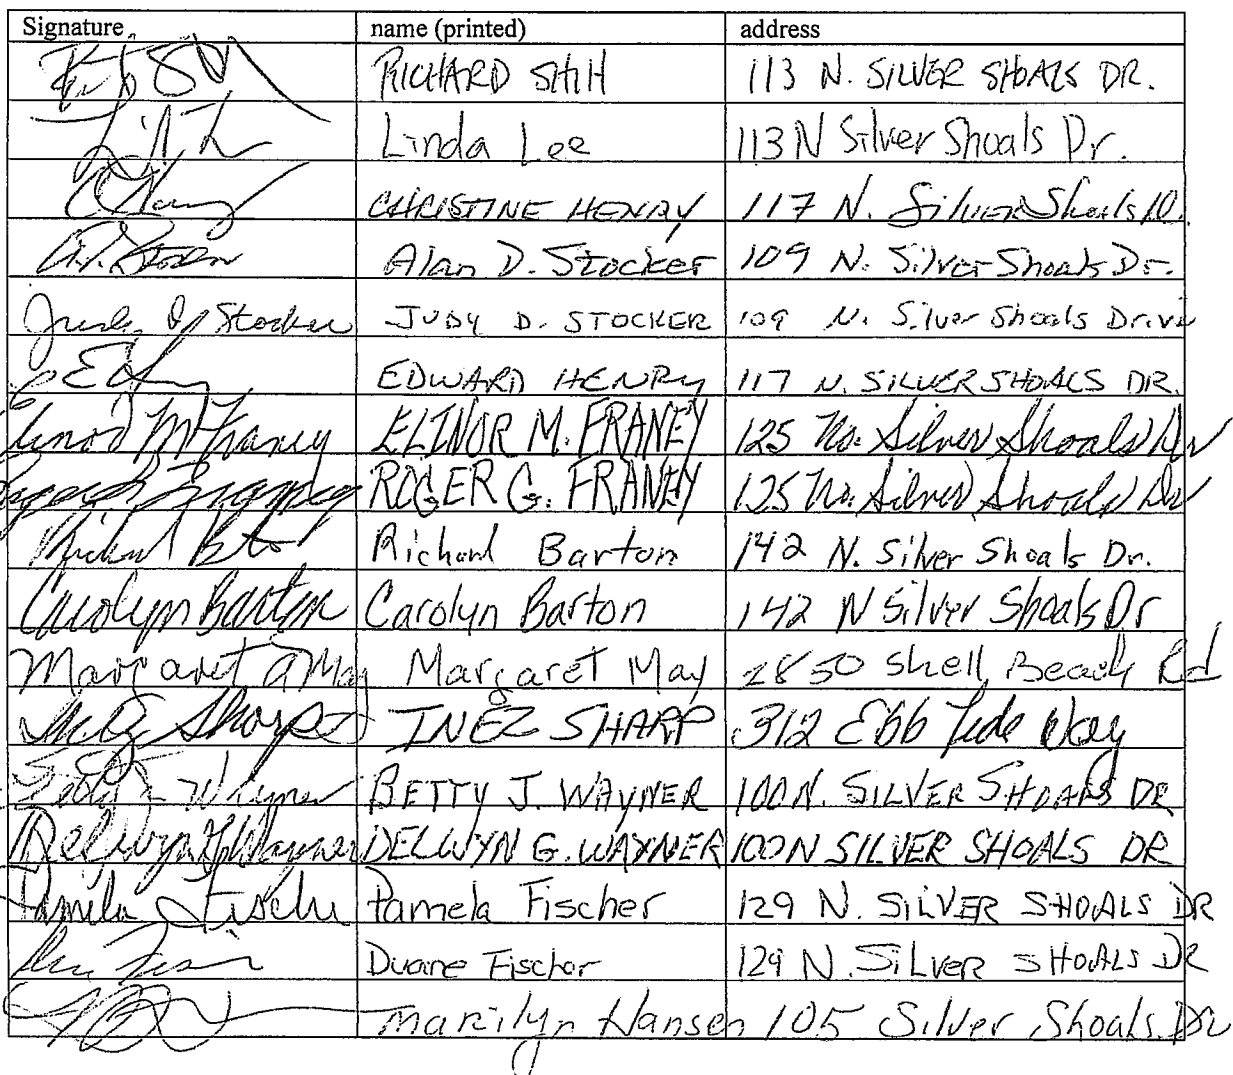 Signature name (printed) address
RICHARD SHIH 113 N. SILVER SHOALS DR.
Linda Lee 113 N Silver Shoals Dr.
CHRISTINE HENRY 117 N. Silver Shoals D.
A.D. Stocker Alan D. Stocker 109 N. Silver Shoals Dr.
Judy D. Stocker JUDY D. STOCKER 109 N. Silver Shoals Drive
EDWARD HENRY 117 N. SILVER SHOALS DR.
Elinor M Franey ELINOR M. FRANEY 125 No. Silver Shoals Dr
Roger G. Franey ROGER G. FRANEY 125 No. Silver Shoals Dr
Richard Barton 142 N. Silver Shoals Dr.
Carolyn Barton Carolyn Barton 142 N Silver Shoals Dr
Margaret A May Margaret May 2850 Shell Beach Rd
Inez Sharp INEZ SHARP 312 Ebb Tide Way
Betty J. Wayner BETTY J. WAYNER 100 N. SILVER SHOALS DR
Delwyn G. Wayner DELWYN G. WAYNER 100 N SILVER SHOALS DR
Pamela Fischer Pamela Fischer 129 N. SILVER SHOALS DR
Duane Fischer 129 N. SILVER SHOALS DR
Marilyn Hansen 105 Silver Shoals Dr